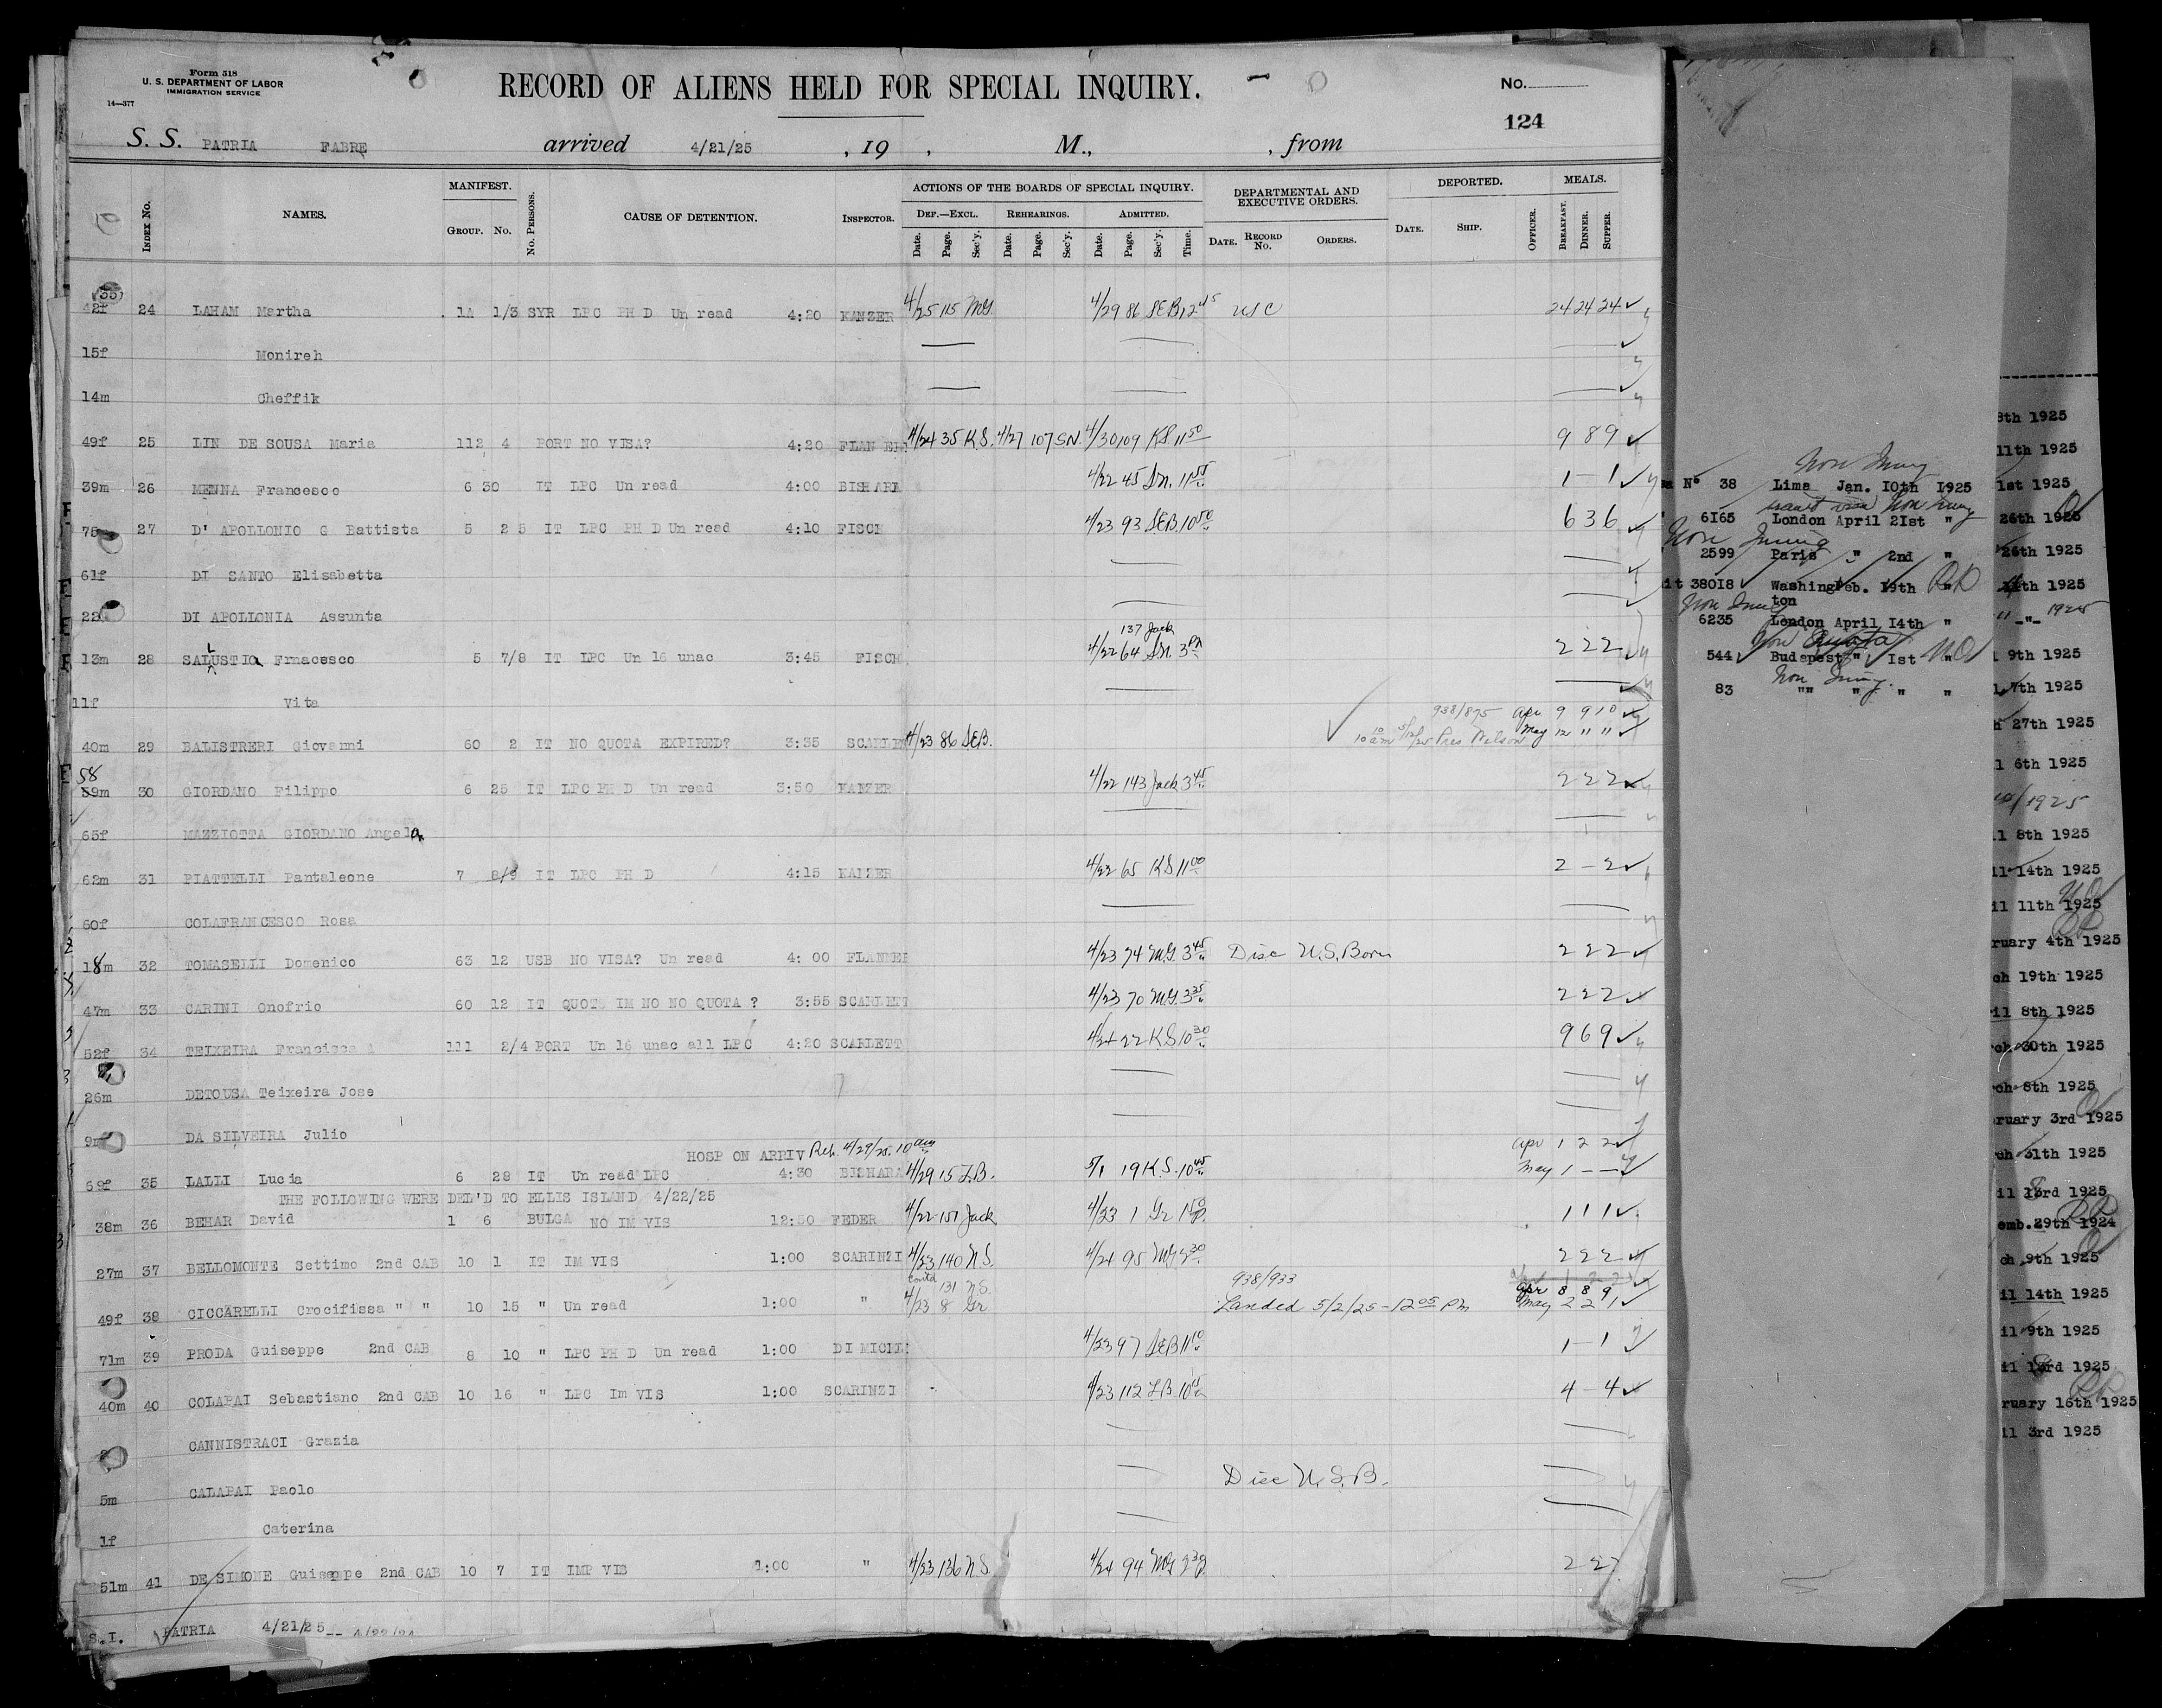 Form 518
U. S. DEPARTMENT OF LABOR
IMMIGRATION SERVICE
14—377
RECORD OF ALIENS HELD FOR SPECIAL INQUIRY.
No.
124
S. S. PATRIA FABRE arrived 4/21/25 , 19 , M., , from
INDEX No. NAMES. MANIFEST. GROUP. No. No. PERSONS. CAUSE OF DETENTION. INSPECTOR. ACTIONS OF THE BOARDS OF SPECIAL INQUIRY. DEPARTMENTAL AND EXECUTIVE ORDERS. DEPORTED. MEALS.
DEF.—EXCL. REHEARINGS. ADMITTED.
Date. Page. Sec'y. Date. Page. Sec'y. Date. Page. Sec'y. Time. DATE. RECORD No. ORDERS. DATE. SHIP. OFFICER. BREAKFAST. DINNER. SUPPER.
42f 24 LAHAM Martha 1A 1/3 SYR LPC PH D Un read 4:20 KANZER 4/25 115 MG. 4/29 86 SEB 12 45 USC 24 24 24
15f Monireh
14m Cheffik
49f 25 LIN DE SOUSA Maria 112 4 PORT NO VISA? 4:20 4/24 35 K.S. 4/27 107 SN. 4/30 109 KS 11 50 9 8 9
39m 26 MENNA Francesco 6 30 IT LPC Un read 4:00 BISHARA 4/22 45 Sn. 11 55 1 - 1
75 27 D' APOLLONIO G Battista 5 2 5 IT LPC PH D Un read 4:10 FISCH 4/23 93 SEB. 10 50 6 3 6
61f DI SANTO Elisabetta
22 DI APOLLONIA Assunta
137 Jack
13m 28 SALLUSTIO Frnacesco 5 7/8 IT LPC Un 16 unac 3:45 FISCH 4/22 64 Sn. 3 2 2 2
11f Vita
938/895 Apr 9 9 10
40m 29 BALISTRERI Giovanni 60 2 IT NO QUOTA EXPIRED? 3:35 SCARLE 4/23 86 SEB. 10 am Pres Wilson May 12 " "
58
59m 30 GIORDANO Filippo 6 25 IT LPC PH D Un read 3:50 KANZER 4/22 143 Jack 3 45 2 2 2
65f MAZZIOTTA GIORDANO Angela
62m 31 PIATTELLI Pantaleone 7 8/9 IT LPC PH D 4:15 KANZER 4/22 65 KS 11 00 2 - 2
60f COLAFRANCESCO Rosa
18m 32 TOMASELLI Domenico 63 12 USB NO VISA? Un read 4: 00 FLANDER 4/23 74 M.G. 3 45 Disc U.S. Born 2 2 2
47m 33 CARINI Onofrio 60 12 IT QUOT IM NO NO QUOTA ? 3:55 SCARLETT 4/23 70 M.G. 3 35 2 2 2
52f 34 TEIXEIRA Francisca A 111 2/4 PORT Un 16 unac all LPC 4:20 SCARLETT 4/24 22 K.S 10 30 9 6 9
26m DETOUSA Teixeira Jose
9m DA SILVEIRA Julio
HOSP ON ARRIV Rel. 4/29/25. 10 am Apr 1 2 2
69f 35 LALLI Lucia 6 28 IT Un read LPC 4:30 BISHARA 4/29 15 L.B. 5/1 19 K.S. 10 45 May 1 - -
THE FOLLOWING WERE DEL'D TO ELLIS ISLAND 4/22/25
38m 36 BEHAR David 1 6 BULGA NO IM VIS 12:50 FEDER 4/22 151 Jack 4/23 1 Gr 1 50 P. 1 1 1
27m 37 BELLOMONTE Settimo 2nd CAB 10 1 IT IM VIS 1:00 SCARINZI 4/23 140 N.S. 4/24 95 MG 2 30 2 2 2
contd 131 N.S. 938/933 Apr 8 8 9
49f 38 CICCARELLI Crocifissa " " 10 15 " Un read 1:00 " 4/23 8 Gr Landed 5/2/25 - 12 05 Pm May 2 2 1
71m 39 PRODA Guiseppe 2nd CAB 8 10 " LPC PH D Un read 1:00 4/23 97 SEB 11 10 1 - 1
40m 40 COLAPAI Sebastiano 2nd CAB 10 16 " LPC Im VIS 1:00 SCARINZI 4/23 112 L.B. 10 4 - 4
CANNISTRACI Grazia
5m CALAPAI Paolo Disc U.S.B.
1f Caterina
51m 41 DE SIMONE Guiseppe 2nd CAB 10 7 IT IMP VIS 1:00 " 4/23 136 N.S. 4/24 94 MG 2 30 2 2
S.I. PATRIA 4/21/25
Non Immig
No 38 Lima Jan. 10th 1925
6165 London April 21st "
Non Immig
2599 Paris " 2nd "
it 38018 Washing Feb. 19th "
ton
Non Immig
6235 London April 14th "
Non Quota
544 Budapest " 1st "
Non Immig.
83 "" " " "
8th 1925
11th 1925
1st 1925
26th 1925
26th 1925
11th 1925
" -"- 1925
9th 1925
7th 1925
27th 1925
6th 1925
/1925
il 8th 1925
il 14th 1925
il 11th 1925
ruary 4th 1925
ch 19th 1925
ril 8th 1925
ch 30th 1925
rch 8th 1925
bruary 3rd 1925
ch 31th 1925
il 13rd 1925
emb. 29th 1924
ch 9th 1925
il 14th 1925
il 9th 1925
il 13rd 1925
ruary 16th 1925
il 3rd 1925